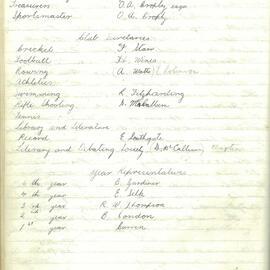 Treasurers O.A. Brophy esqu
Sportsmaster O.A. Brophy
Club Secretaries
Cricket F. Starr
Football H. Wines
Rowing A. Watts
Athletics
Swimming R. Fitzhardinge
Rifle Shooting D. McCallum
Tennis
Library and Literature
Record E. Southgate
Literary and Debating Society (D. McCallum)
Year Representatives
5th year C. Gardiner
4th year E. Silk
3rd year R. W. Thompson
2nd year B. London
1st year Curren